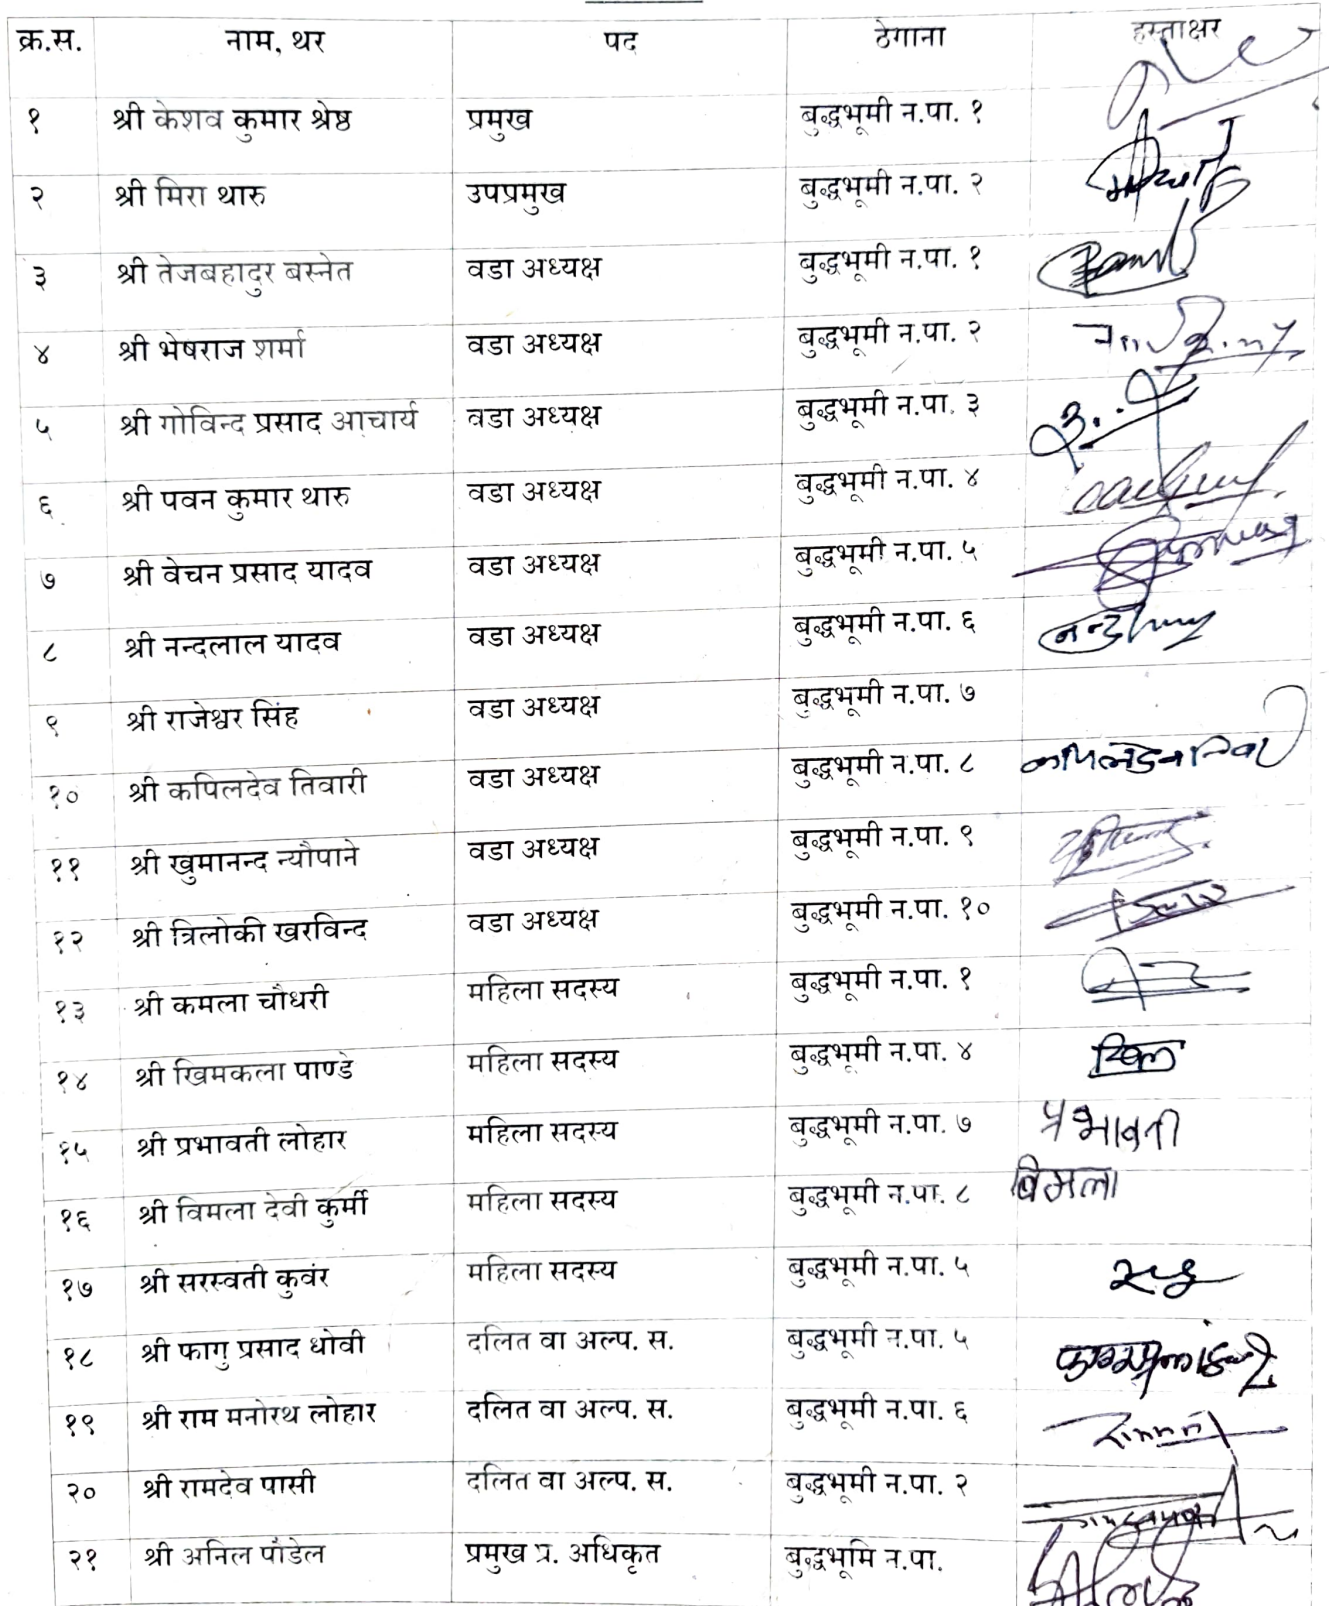 क्र.स. नाम, थर पद ठेगाना हस्ताक्षर
१ श्री केशव कुमार श्रेष्ठ प्रमुख बुद्धभूमी न.पा. १
२ श्री मिरा थारु उपप्रमुख बुद्धभूमी न.पा. २
३ श्री तेजबहादुर बस्नेत वडा अध्यक्ष बुद्धभूमी न.पा. १
४ श्री भेषराज शर्मा वडा अध्यक्ष बुद्धभूमी न.पा. २
५ श्री गोविन्द प्रसाद आचार्य वडा अध्यक्ष बुद्धभूमी न.पा. ३
६ श्री पवन कुमार थारु वडा अध्यक्ष बुद्धभूमी न.पा. ४
७ श्री वेचन प्रसाद यादव वडा अध्यक्ष बुद्धभूमी न.पा. ५
८ श्री नन्दलाल यादव वडा अध्यक्ष बुद्धभूमी न.पा. ६
९ श्री राजेश्वर सिंह वडा अध्यक्ष बुद्धभूमी न.पा. ७
१० श्री कपिलदेव तिवारी वडा अध्यक्ष बुद्धभूमी न.पा. ८
११ श्री खुमानन्द न्यौपाने वडा अध्यक्ष बुद्धभूमी न.पा. ९
१२ श्री त्रिलोकी खरविन्द वडा अध्यक्ष बुद्धभूमी न.पा. १०
१३ श्री कमला चौधरी महिला सदस्य बुद्धभूमी न.पा. १
१४ श्री खिमकला पाण्डे महिला सदस्य बुद्धभूमी न.पा. ४
१५ श्री प्रभावती लोहार महिला सदस्य बुद्धभूमी न.पा. ७ प्रभावती
१६ श्री विमला देवी कुर्मी महिला सदस्य बुद्धभूमी न.पा. ८ बिमला
१७ श्री सरस्वती कुवंर महिला सदस्य बुद्धभूमी न.पा. ५
१८ श्री फागु प्रसाद धोवी दलित वा अल्प. स. बुद्धभूमी न.पा. ५
१९ श्री राम मनोरथ लोहार दलित वा अल्प. स. बुद्धभूमी न.पा. ६
२० श्री रामदेव पासी दलित वा अल्प. स. बुद्धभूमी न.पा. २
२१ श्री अनिल पौडेल प्रमुख प्र. अधिकृत बुद्धभूमि न.पा.